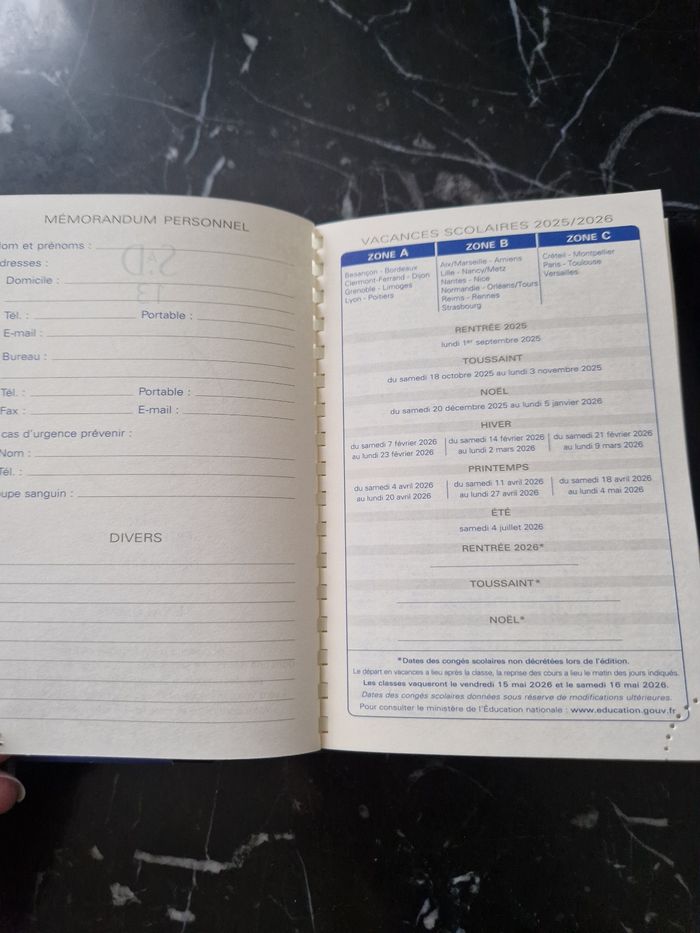 MÉMORANDUM PERSONNEL
om et prénoms :
dresses :
Domicile :
Tél. : Portable :
E-mail :
Bureau :
Tél. : Portable :
Fax : E-mail :
cas d'urgence prévenir :
Nom :
Tél. :
upe sanguin :
DIVERS
VACANCES SCOLAIRES 2025/2026
ZONE A
Besançon - Bordeaux
Clermont-Ferrand - Dijon
Grenoble - Limoges
Lyon - Poitiers
ZONE B
Aix/Marseille - Amiens
Lille - Nancy/Metz
Nantes - Nice
Normandie - Orléans/Tours
Reims - Rennes
Strasbourg
ZONE C
Créteil - Montpellier
Paris - Toulouse
Versailles
RENTRÉE 2025
lundi 1er septembre 2025
TOUSSAINT
du samedi 18 octobre 2025 au lundi 3 novembre 2025
NOËL
du samedi 20 décembre 2025 au lundi 5 janvier 2026
HIVER
du samedi 7 février 2026
au lundi 23 février 2026
du samedi 14 février 2026
au lundi 2 mars 2026
du samedi 21 février 2026
au lundi 9 mars 2026
PRINTEMPS
du samedi 4 avril 2026
au lundi 20 avril 2026
du samedi 11 avril 2026
au lundi 27 avril 2026
du samedi 18 avril 2026
au lundi 4 mai 2026
ÉTÉ
samedi 4 juillet 2026
RENTRÉE 2026*
TOUSSAINT*
NOËL*
*Dates des congés scolaires non décrétées lors de l'édition.
Le départ en vacances a lieu après la classe, la reprise des cours a lieu le matin des jours indiqués.
Les classes vaqueront le vendredi 15 mai 2026 et le samedi 16 mai 2026.
Dates des congés scolaires données sous réserve de modifications ultérieures.
Pour consulter le ministère de l'Éducation nationale : www.education.gouv.fr